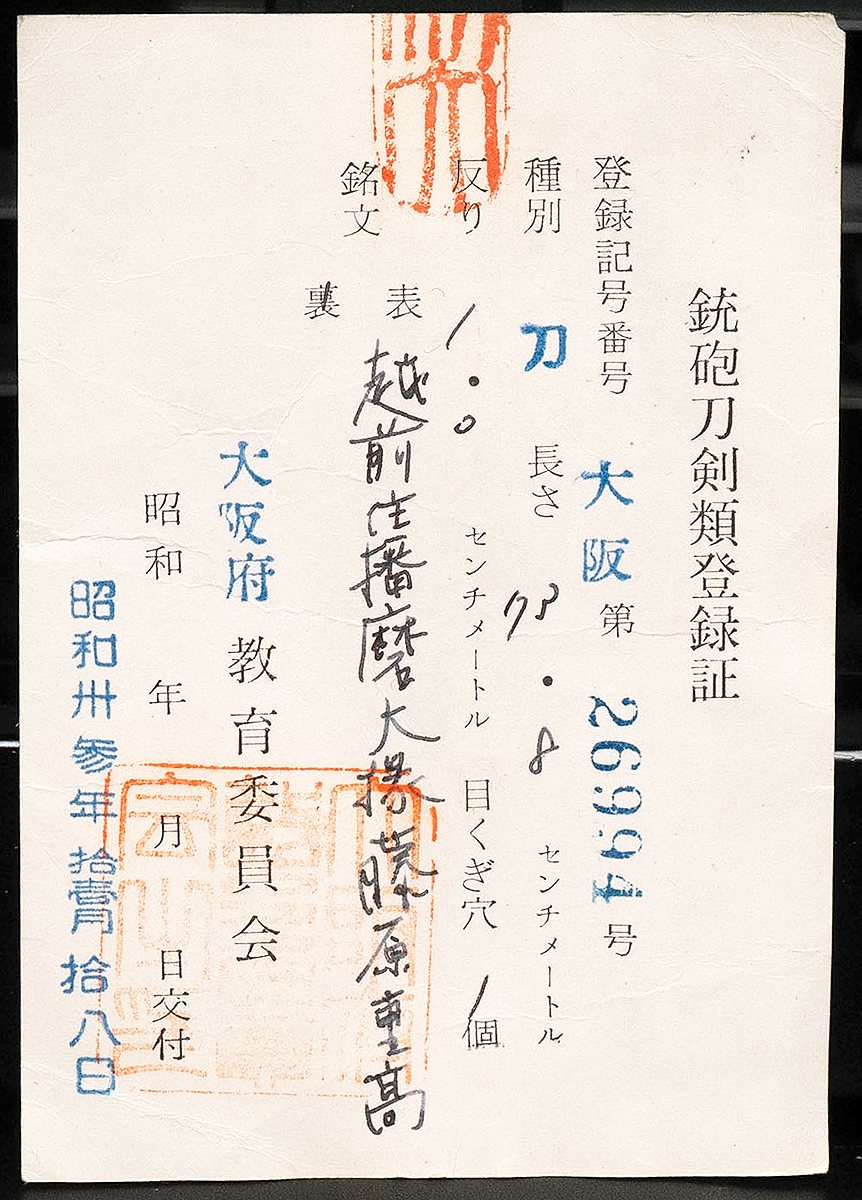 銃砲刀剣類登録証
登録記号番号 大阪 第 26994 号
種別 刀 長さ 73.8 センチメートル
反り 1.0 センチメートル 目くぎ穴 1 個
銘文 表 越前住播磨大掾藤原重高
裏
大阪府教育委員会
昭和 年 月 日交付
昭和卅参年拾壹月拾八日